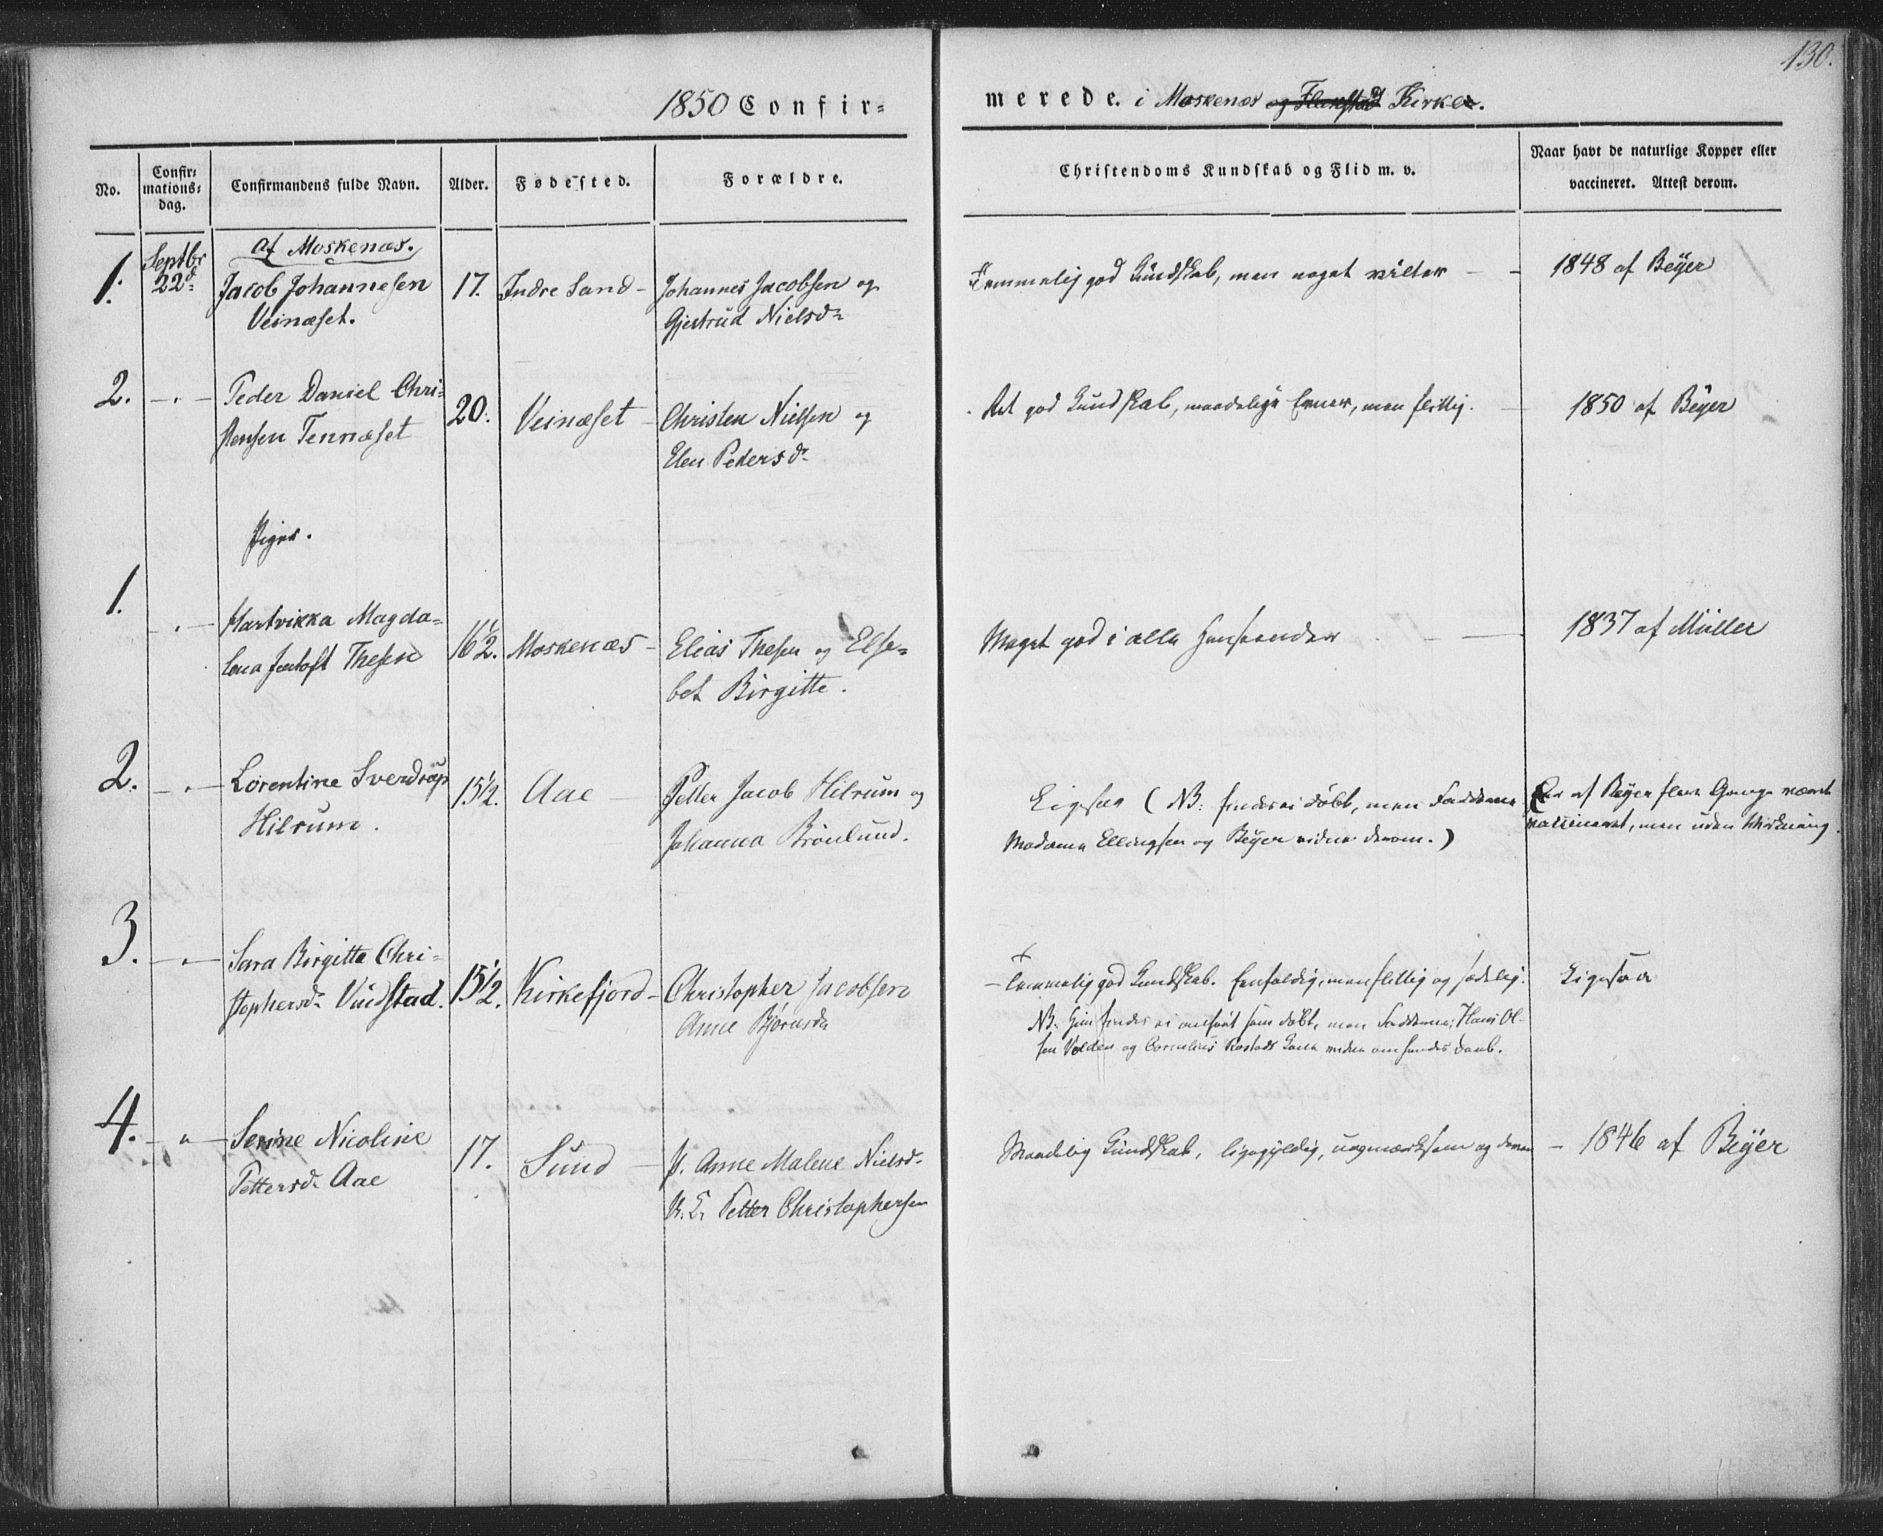 130.
1850 Confir-
merede. i Moskenæs og Flakstad Kirke.
No.
Confir-
mations-
dag.
Confirmandens fulde Navn.
Alder.
Fødested.
Forældre.
Christendoms Kundskab og Flid m. v.
Naar havt de naturlige Kopper eller
vaccineret. Attest derom.
af Moskenæs.
1. Septbr
22d
Jacob Johannesen
Veinæset.
17. Indre Sand -
Johannes Jacobsen og
Gjertrud Nielsd.
Temmelig god Kundskab, men noget vilter - -
1848 af Beÿer
2. - " -
Peder Daniel Chri-
stensen Tennæset
20. Veinæset -
Christen Nielsen og
Elen Pedersd.
Ret god Kundskab, maadelige Evner, men flittig. -
1850 af Beÿer
Piger.
1. - " -
Hartvikka Magda-
lena Jentoft Thesen
16 1/2. Moskenæs -
Elias Thesen og Else-
bet Birgitte.
Meget god i alle Henseender - -
1837 af Müller
2. - " -
Lorentine Sverdrup
Hilrum.
15 1/2. Aae -
Petter Jacob Hilrum og
Johanna Brönlund.
Ligesaa (NB: findes ei døbt, men Fadderne
Madame Ellingsen og Beÿer vidne derom.)
Er af Beÿer flere Gange været
vaccineret, men uden Virkning.
3. - " -
Sara Birgitte Chri-
stophersd. Vindstad.
15 1/2. Kirkefjord -
Christopher Jacobsen
Anne Bjørnsd.
- Temmelig god Kundskab. Eenfoldig, men flittig og sædelig.
NB. Hun findes ei anført som døbt, men Fadderne: Hans Ol-
sen Volden og Cornelius Rostads Kone vidne om hendes Daab.
Ligesaa
4. - " -
Serine Nicoline
Pettersd. Aae
17. Sund -
P. Anne Malene Nielsd.
U. E. Petter Christophersen
Maadelig Kundskab, ligegyldig, uopmærksom og doven
- 1846 af Beÿer